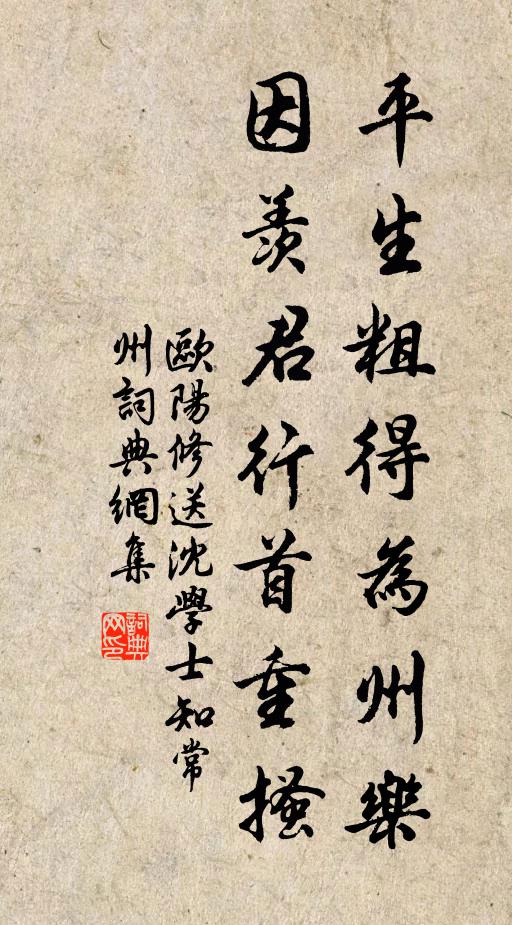 平生粗得為州樂
因羨君行首重搔
歐陽修送沈學士知常
州詞典網集
詞典網印